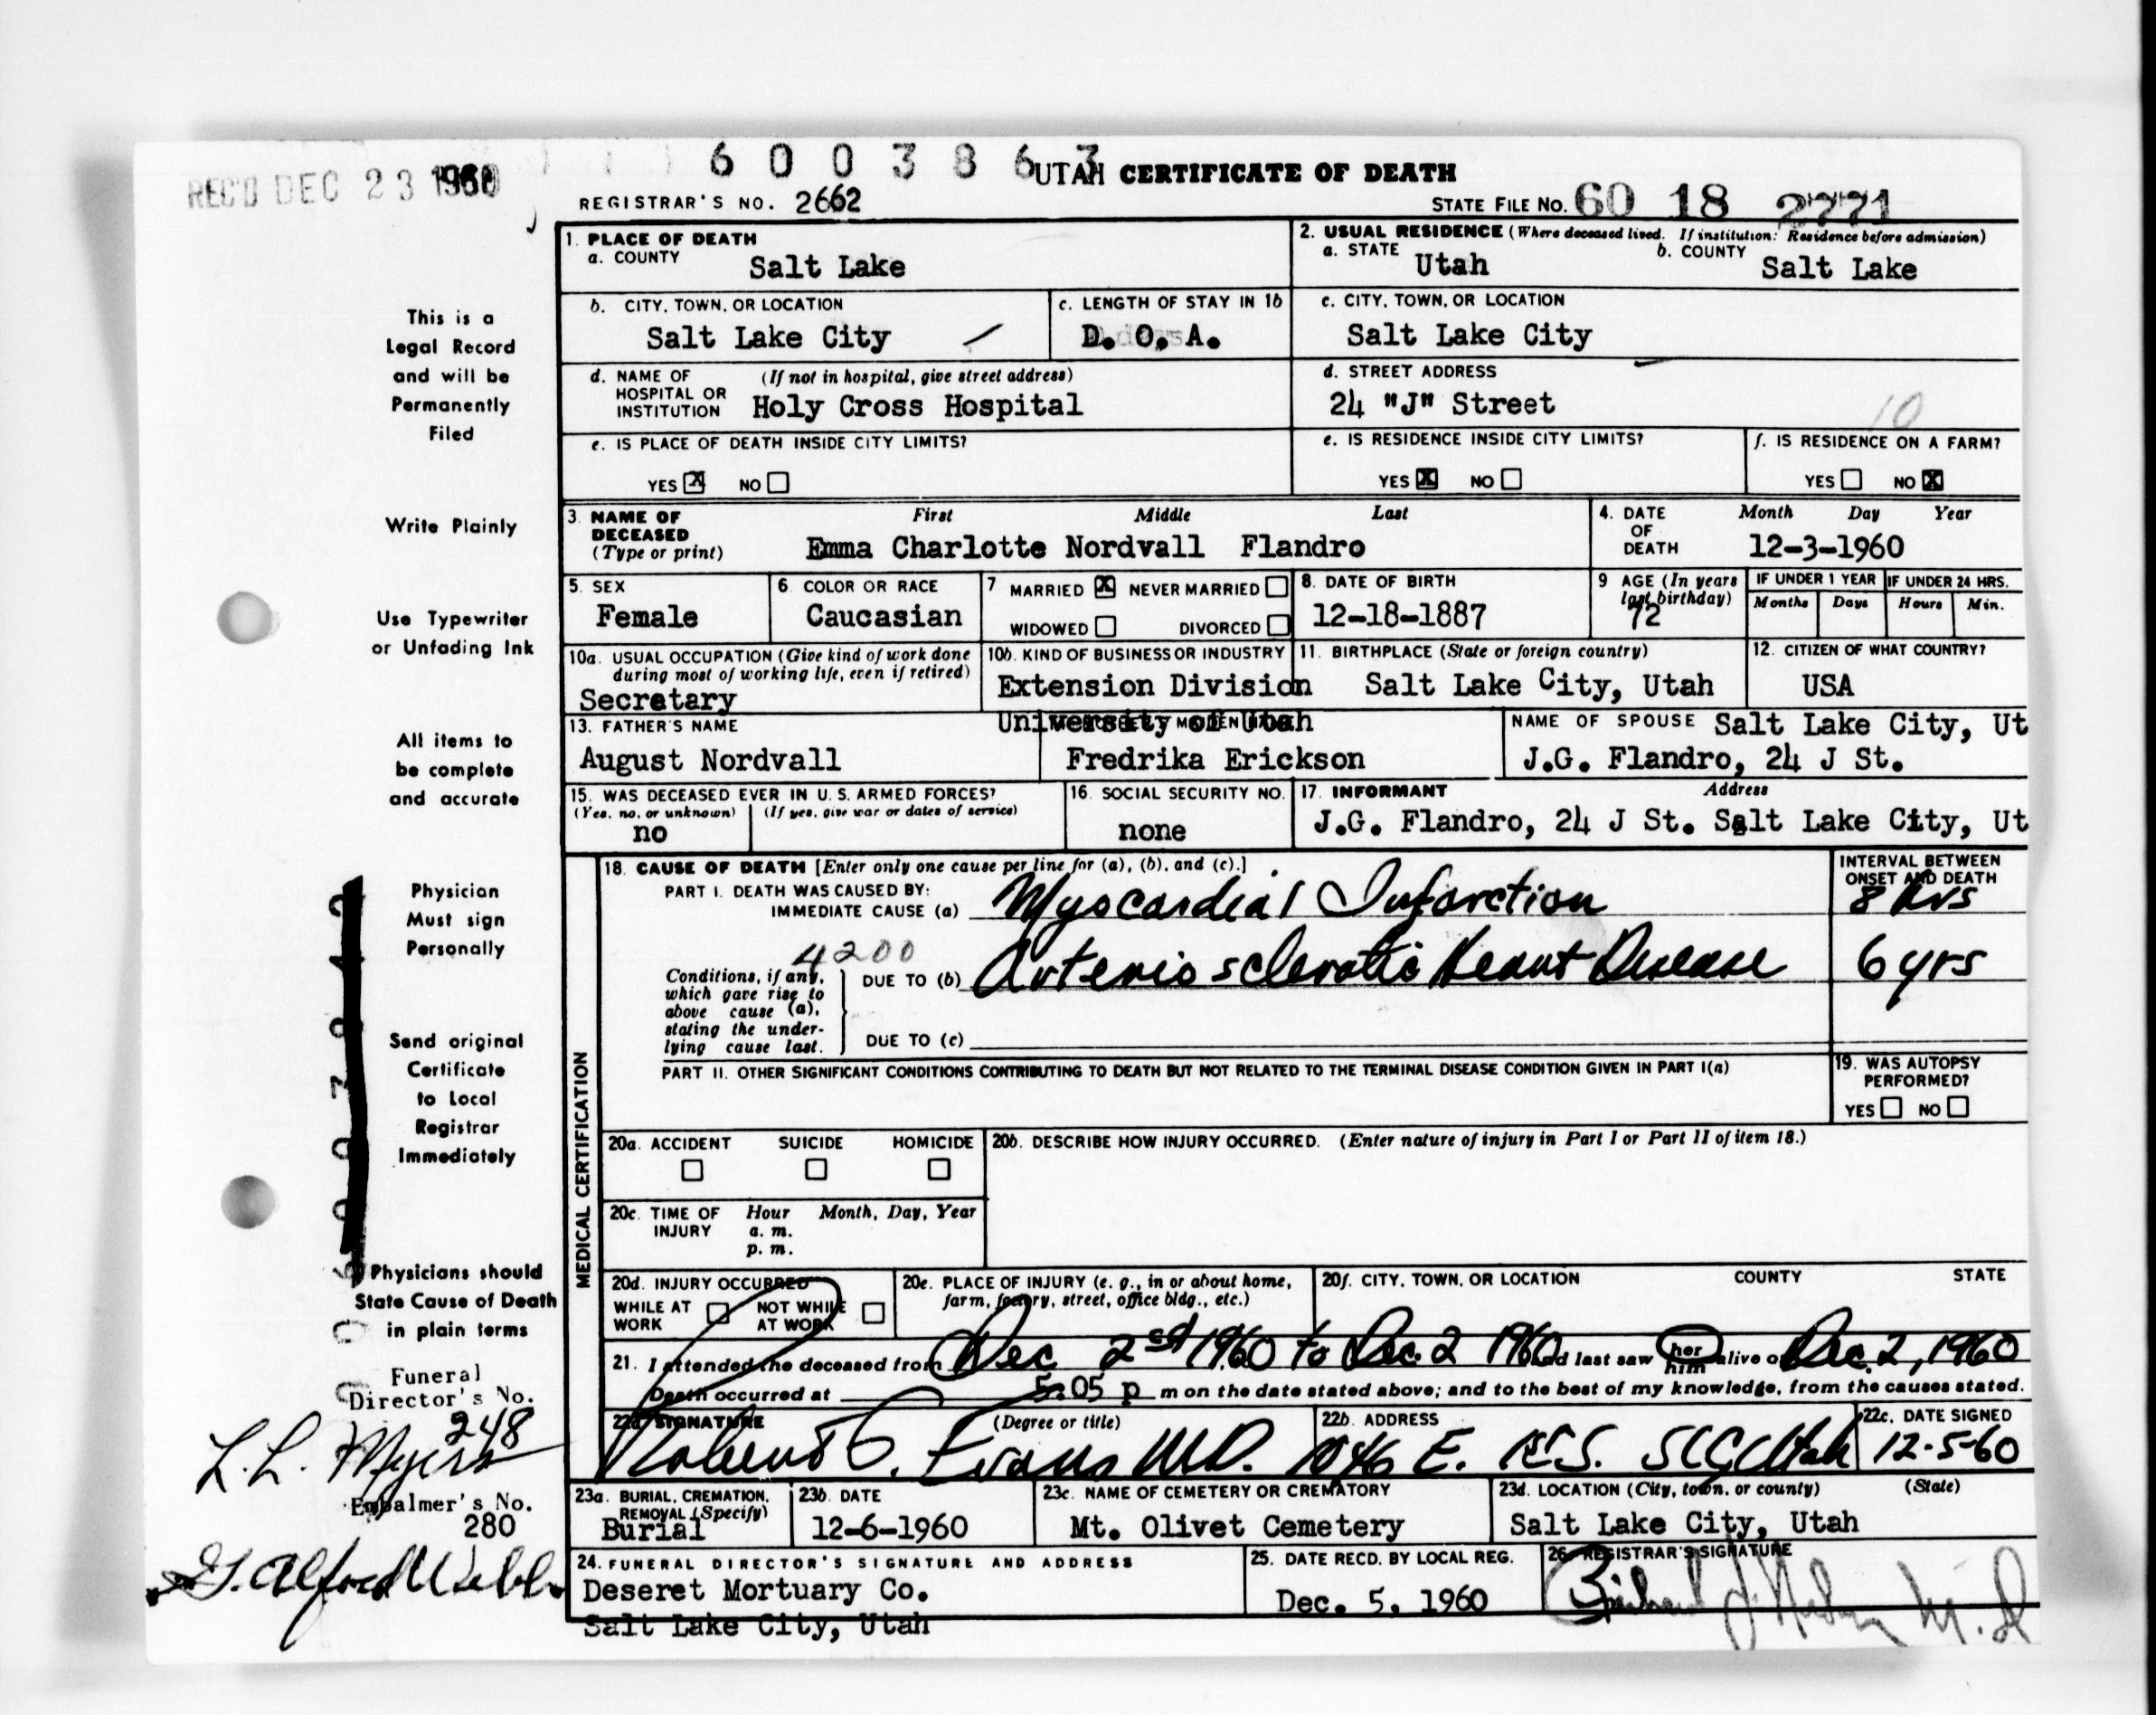 REC'D DEC 23 1960
6003863
UTAH CERTIFICATE OF DEATH
REGISTRAR'S NO. 2662
STATE FILE NO. 60 18 2771
1. PLACE OF DEATH
a. COUNTY Salt Lake
2. USUAL RESIDENCE (Where deceased lived. If institution: Residence before admission)
a. STATE Utah b. COUNTY Salt Lake
b. CITY, TOWN, OR LOCATION Salt Lake City
c. LENGTH OF STAY IN 1b D. O. A.
c. CITY, TOWN, OR LOCATION Salt Lake City
d. NAME OF HOSPITAL OR INSTITUTION (If not in hospital, give street address) Holy Cross Hospital
d. STREET ADDRESS 24 "J" Street
10
e. IS PLACE OF DEATH INSIDE CITY LIMITS?
YES X NO
e. IS RESIDENCE INSIDE CITY LIMITS?
YES X NO
f. IS RESIDENCE ON A FARM?
YES NO X
3. NAME OF DECEASED (Type or print) First Middle Last
Emma Charlotte Nordvall Flandro
4. DATE OF DEATH Month Day Year
12-3-1960
5. SEX Female
6. COLOR OR RACE Caucasian
7 MARRIED X NEVER MARRIED
WIDOWED DIVORCED
8. DATE OF BIRTH 12-18-1887
9 AGE (In years last birthday) 72
IF UNDER 1 YEAR Months Days
IF UNDER 24 HRS. Hours Min.
10a. USUAL OCCUPATION (Give kind of work done during most of working life, even if retired)
Secretary
10b. KIND OF BUSINESS OR INDUSTRY
Extension Division
University of Utah
11. BIRTHPLACE (State or foreign country)
Salt Lake City, Utah
12. CITIZEN OF WHAT COUNTRY?
USA
13. FATHER'S NAME
August Nordvall
Fredrika Erickson
NAME OF SPOUSE Salt Lake City, Ut
J.G. Flandro, 24 J St.
15. WAS DECEASED EVER IN U. S. ARMED FORCES?
(Yes, no, or unknown) (If yes, give war or dates of service)
no
16. SOCIAL SECURITY NO.
none
17. INFORMANT Address
J.G. Flandro, 24 J St. Salt Lake City, Ut
18. CAUSE OF DEATH [Enter only one cause per line for (a), (b), and (c).]
INTERVAL BETWEEN ONSET AND DEATH
PART I. DEATH WAS CAUSED BY:
IMMEDIATE CAUSE (a) Myocardial Infarction 8 hrs
4200
Conditions, if any, which gave rise to above cause (a), stating the underlying cause last.
DUE TO (b) Arterio sclerotic Heart Disease 6 yrs
DUE TO (c)
PART II. OTHER SIGNIFICANT CONDITIONS CONTRIBUTING TO DEATH BUT NOT RELATED TO THE TERMINAL DISEASE CONDITION GIVEN IN PART I(a)
19. WAS AUTOPSY PERFORMED?
YES NO
MEDICAL CERTIFICATION
20a. ACCIDENT SUICIDE HOMICIDE
20b. DESCRIBE HOW INJURY OCCURRED. (Enter nature of injury in Part I or Part II of item 18.)
20c. TIME OF INJURY Hour Month, Day, Year
a. m.
p. m.
20d. INJURY OCCURRED
WHILE AT WORK NOT WHILE AT WORK
20e. PLACE OF INJURY (e. g., in or about home, farm, factory, street, office bldg., etc.)
20f. CITY, TOWN, OR LOCATION COUNTY STATE
21. I attended the deceased from Dec 2 1960 to Dec. 2 1960 and last saw her him alive on Dec. 2, 1960
Death occurred at 5:05 p m on the date stated above; and to the best of my knowledge, from the causes stated.
22a. SIGNATURE (Degree or title)
Robert C. Evans MD.
22b. ADDRESS
1046 E. SLC Utah
22c. DATE SIGNED
12-5-60
23a. BURIAL, CREMATION, REMOVAL (Specify)
Burial
23b. DATE
12-6-1960
23c. NAME OF CEMETERY OR CREMATORY
Mt. Olivet Cemetery
23d. LOCATION (City, town, or county) (State)
Salt Lake City, Utah
24. FUNERAL DIRECTOR'S SIGNATURE AND ADDRESS
Deseret Mortuary Co.
Salt Lake City, Utah
25. DATE RECD. BY LOCAL REG.
Dec. 5, 1960
26. REGISTRAR'S SIGNATURE
This is a
Legal Record
and will be
Permanently
Filed
Write Plainly
Use Typewriter
or Unfading Ink
All items to
be complete
and accurate
Physician
Must sign
Personally
Send original
Certificate
to Local
Registrar
Immediately
Physicians should
State Cause of Death
in plain terms
Funeral
Director's No.
248
L.L. Myers
Embalmer's No.
280
G. Alfred Webb